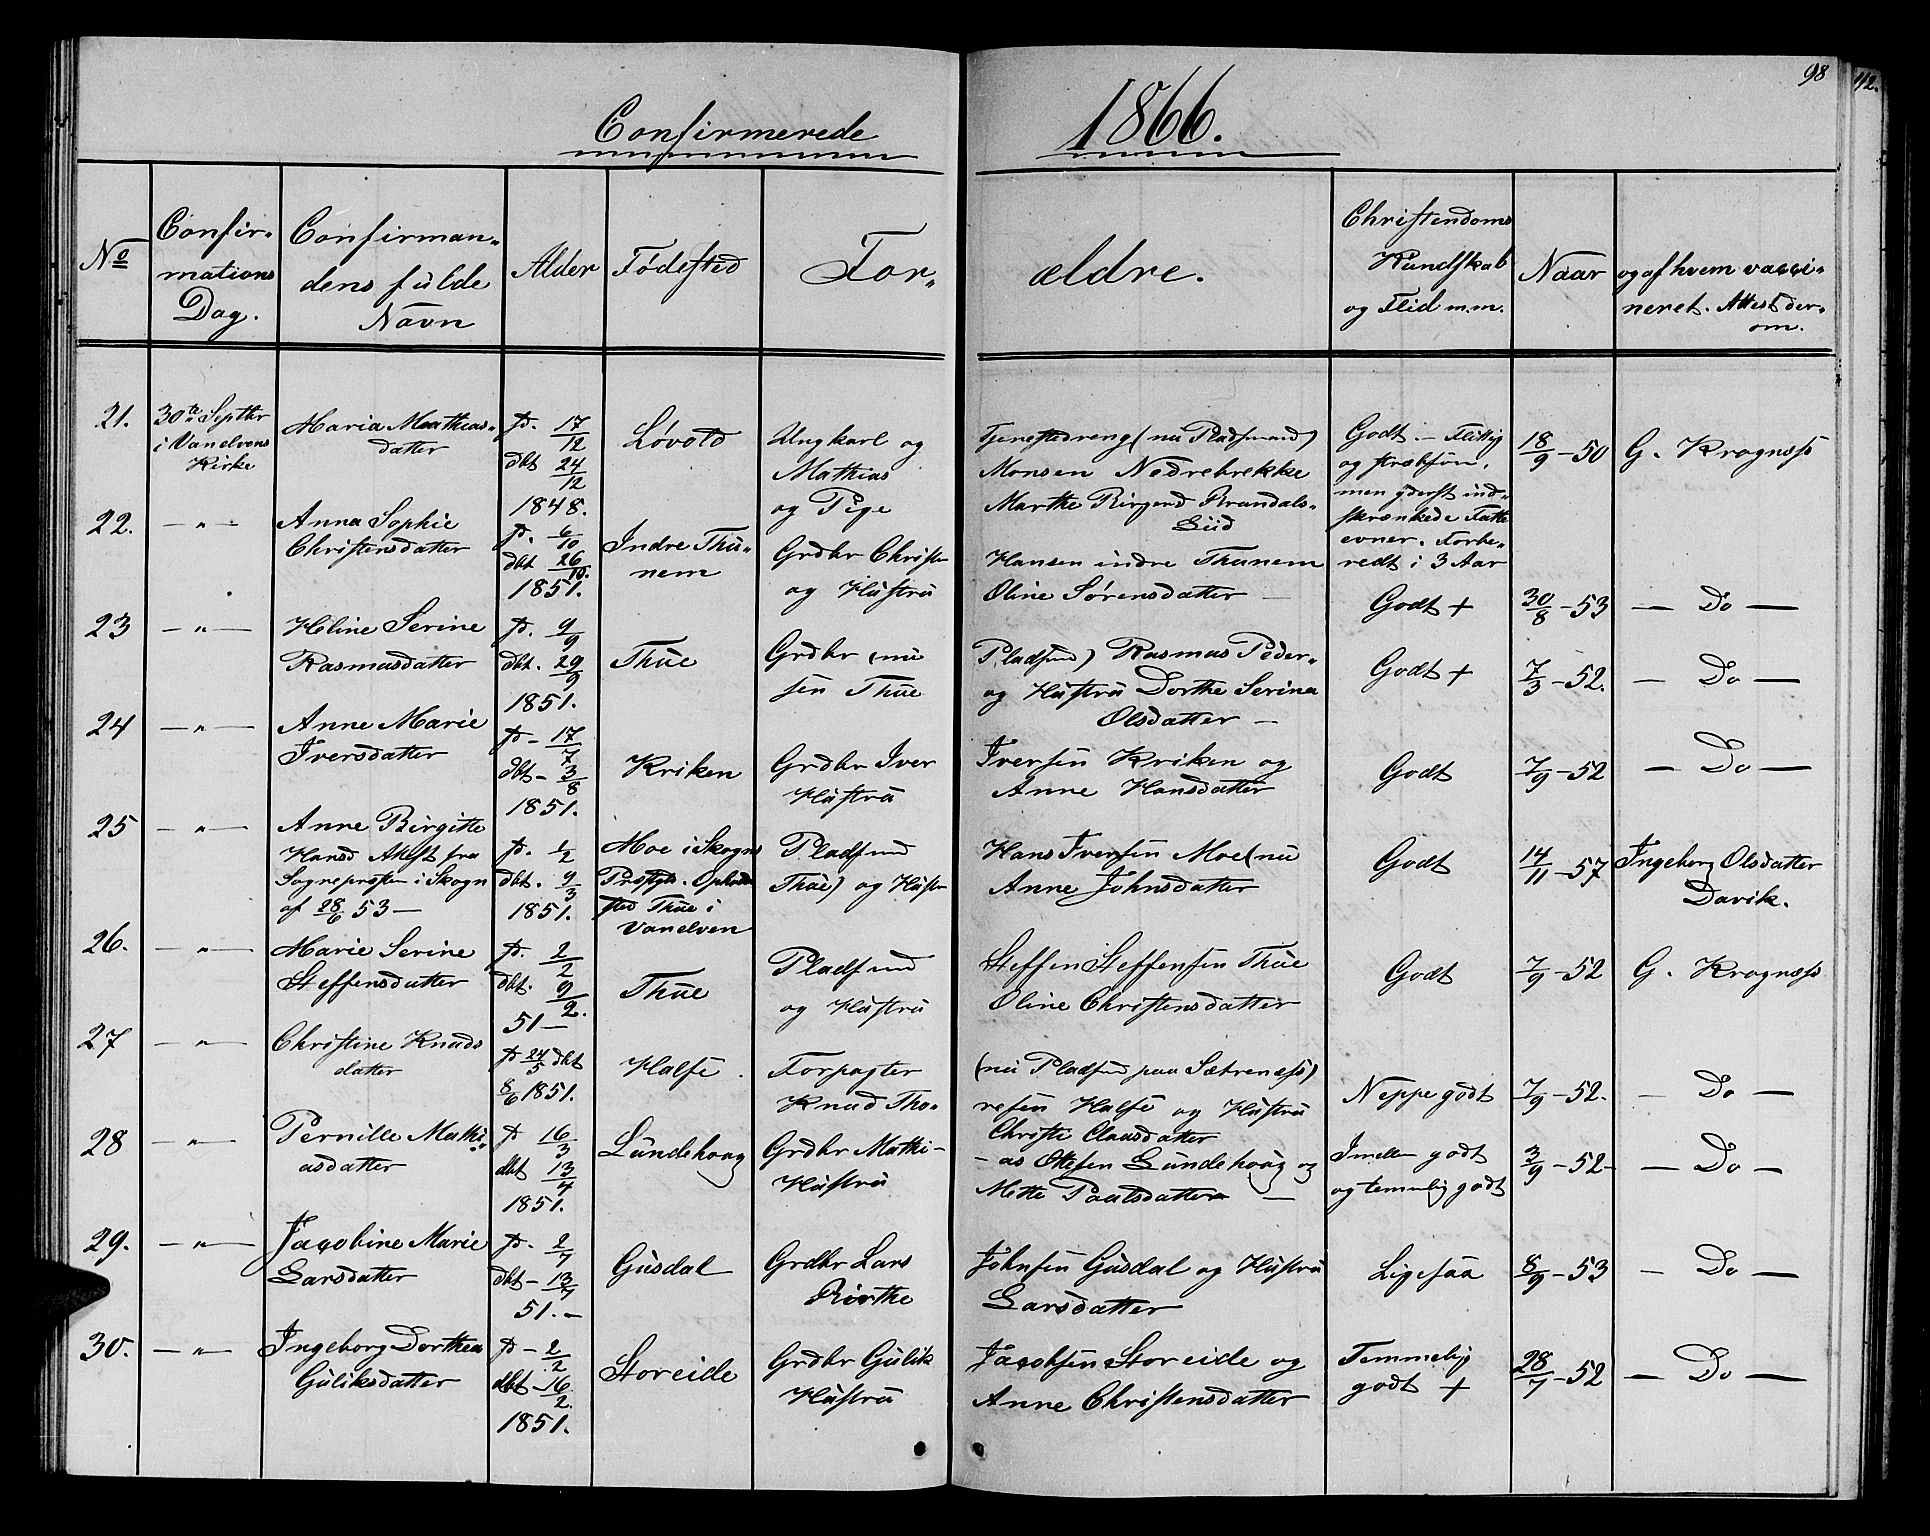 98
112.
Confirmerede 1866.
No
Confir-
mations
Dag.
Confirman-
dens fulde
Navn
Alder
Fødested
For-
ældre.
Christendoms
Kundskab
og Flid m.m.
Naar
og af hvem vacci-
neret. Attest der-
om.
21.
30te Septbr
i Vanelvens
Kirke
Maria Mathias-
datter
fd. 17/12
dbt 24/12
1848.
Løvold
Ungkarl og
Mathias
og Pige
Tjenestedreng (nu Pladsmand)
Monsen Nedrebrekke
Marthe Birgerd Brandals-
Liid
Godt. - Flittig
og
men yderst ind-
skrænkede Fatte
evner. Forbe-
redt i 3 Aar
18/9-50
G. Kragnæss
22.
- " -
Anna Sophie
Christensdatter
fd. 6/10
dbt 26/10.
1851.
Indre Thu-
nem
Grdbr Christen
og Hustru
Hansen indre Thunem
Oline Sørensdatter -
Godt +
30/8-53
- Do -
23
- " -
Heline Serine
Rasmusdatter
fd. 9/9
dbt. 29/9
1851.
Thue
Grdbr (nu
sen Thue
Pladsmd) Rasmus Peder-
og Hustru Dorthe Serina
Olsdatter -
Godt +
7/3-52.
- Do -
24
- " -
Anne Marie
Iversdatter
fd- 17/7
dbt- 3/8
1851.
Kriken
Grdbr Iver
Hustru
Iversen Kriken og
Anne Hansdatter
Godt
7/9-52
- Do -
25
- " -
Anne Birgitte
Hansd Attest fra
Sognepresten i Skogn
af 28/6 53 -
fd. 1/2
dbt. 9/3
1851.
Moe i Skogns
Prstgd. Opholds
sted Thue i
Vanelven
Pladsmd
Thue) og Hustru
Hans Iversen Moe (nu
Anne Johnsdatter
Godt
14/11-57
Ingeborg Olsdatter
Davik.
26.
- " -
Marie Serine
Steffensdatter
fd. 2/2
dbt. 9/2.
51 -
Thue
Pladsmd
og Hustru
Steffen Steffensen Thue
Oline Christensdatter
Godt
7/9-52
G. Kragnæss
27
- " -
Christine Knuds
datter
fd 24/5 dbt
8/6 1851.
Halse
Forpagter
Knud Tho-
(nu Pladsmd paa Sætrenæss)
resen Halse og Hustru
Christi Clausdatter
Neppe godt
7/9-52.
- Do -
28
- " -
Pernille Mathi-
asdatter
fd 16/3
dbt 13/4
1851.
Lundehoug
Grdbr Mathi-
Hustru
- as Ottesen Lundehoug og
Mette Paulsdatter -
Imellem godt
og temmelig godt
3/9-52-
- Do -
29.
- " -
Jacobine Marie
Larsdatter
fd. 2/7
dbt- 13/7
51. -
Gusdal
Grdbr Lars
Johnsen Gusdal og Hustru
Larsdatter
Ligesaa
8/9-53
- Do -
30.
- " -
Ingeborg Dorthea
Guliksdatter
fd- 2/2
dbt- 16/2.
1851.
Storeide
Grdbr Gulik
Hustru
Jacobsen Storeide og
Anne Christensdatter
Temmelig
godt +
28/7-52
- Do -